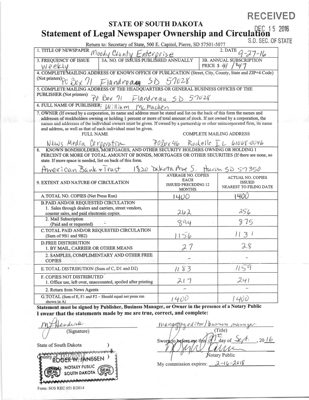 RECEIVED
DEC 15 2016
S.D. SEC. OF STATE
STATE OF SOUTH DAKOTA
Statement of Legal Newspaper Ownership and Circulation
Return to: Secretary of State, 500 E. Capitol, Pierre, SD 57501-5077
1. TITLE OF NEWSPAPER Moody County Enterprise 2. DATE 9-27-16
3. FREQUENCY OF ISSUE weekly 3A. NO. OF ISSUES PUBLISHED ANNUALLY 3B. ANNUAL SUBSCRIPTION PRICE $ 41/47
4. COMPLETE MAILING ADDRESS OF KNOWN OFFICE OF PUBLICATION (Street, City, County, State and ZIP+4 Code)
(Not printers) Po Box 71 Flandreau SD 57028
5. COMPLETE MAILING ADDRESS OF THE HEADQUARTERS OR GENERAL BUSINESS OFFICES OF THE
PUBLISHER (Not printers) Po Box 71 Flandreau SD 57028
6. FULL NAME OF PUBLISHER: William McMacken
7. OWNER (If owned by a corporation, its name and address must be stated and list on the back of this form the names and
addresses of stockholders owning or holding 1 percent or more of total amount of stock. If not owned by a corporation, the
names and addresses of the individual owners must be given. If owned by a partnership or other unincorporated firm, its name
and address, as well as that of each individual must be given.
FULL NAME COMPLETE MAILING ADDRESS
News Media Corporation PO Box 46 Rochelle IL 61068-0046
8. KNOWN BONDHOLDERS, MORTGAGES, AND OTHER SECURITY HOLDERS OWNING OR HOLDING 1
PERCENT OR MORE OF TOTAL AMOUNT OF BONDS, MORTGAGES OR OTHER SECURITIES (If there are none, so
state. If more space is needed, list on back of this form.
American Bank + Trust 1820 Dakota Ave S. Huron SD 57350
9. EXTENT AND NATURE OF CIRCULATION AVERAGE NO. COPIES EACH ISSUED PRECEDING 12 MONTHS ACTUAL NO. COPIES ISSUED NEAREST TO FILING DATE
A. TOTAL NO. COPIES (Net Press Run) 1400 1400
B. PAID AND/OR REQUESTED CIRCULATION
1. Sales through dealers and carriers, street vendors,
counter sales, and paid electronic copies. 262 256
2. Mail Subscription
(Paid and or requested) 894 875
C. TOTAL PAID AND/OR REQUESTED CIRCULATION
(Sum of 9B1 and 9B2) 1156 1131
D. FREE DISTRIBUTION
1. BY MAIL, CARRIER OR OTHER MEANS 27 28
2. SAMPLES, COMPLIMENTARY AND OTHER FREE
COPIES - -
E. TOTAL DISTRIBUTION (Sum of C, D1 and D2) 1183 1159
F. COPIES NOT DISTRIBUTED
1. Office use, left over, unaccounted, spoiled after printing 217 241
2. Return from News Agents - -
G. TOTAL (Sum of E, F1 and F2 – Should equal net press run
shown in A) 1400 1400
Statement must be signed by Publisher, Business Manager, or Owner in the presence of a Notary Public
I swear that the statements made by me are true, correct, and complete:
managing editor/business manager
(Signature) (Title)
State of South Dakota )
Sworn to before me this day of Sept. 2016
ROGER W. JANSSEN
NOTARY PUBLIC
SOUTH DAKOTA
Notary Public
My commission expires: 2-16-2018
Form: SOS REC 051 8/2014